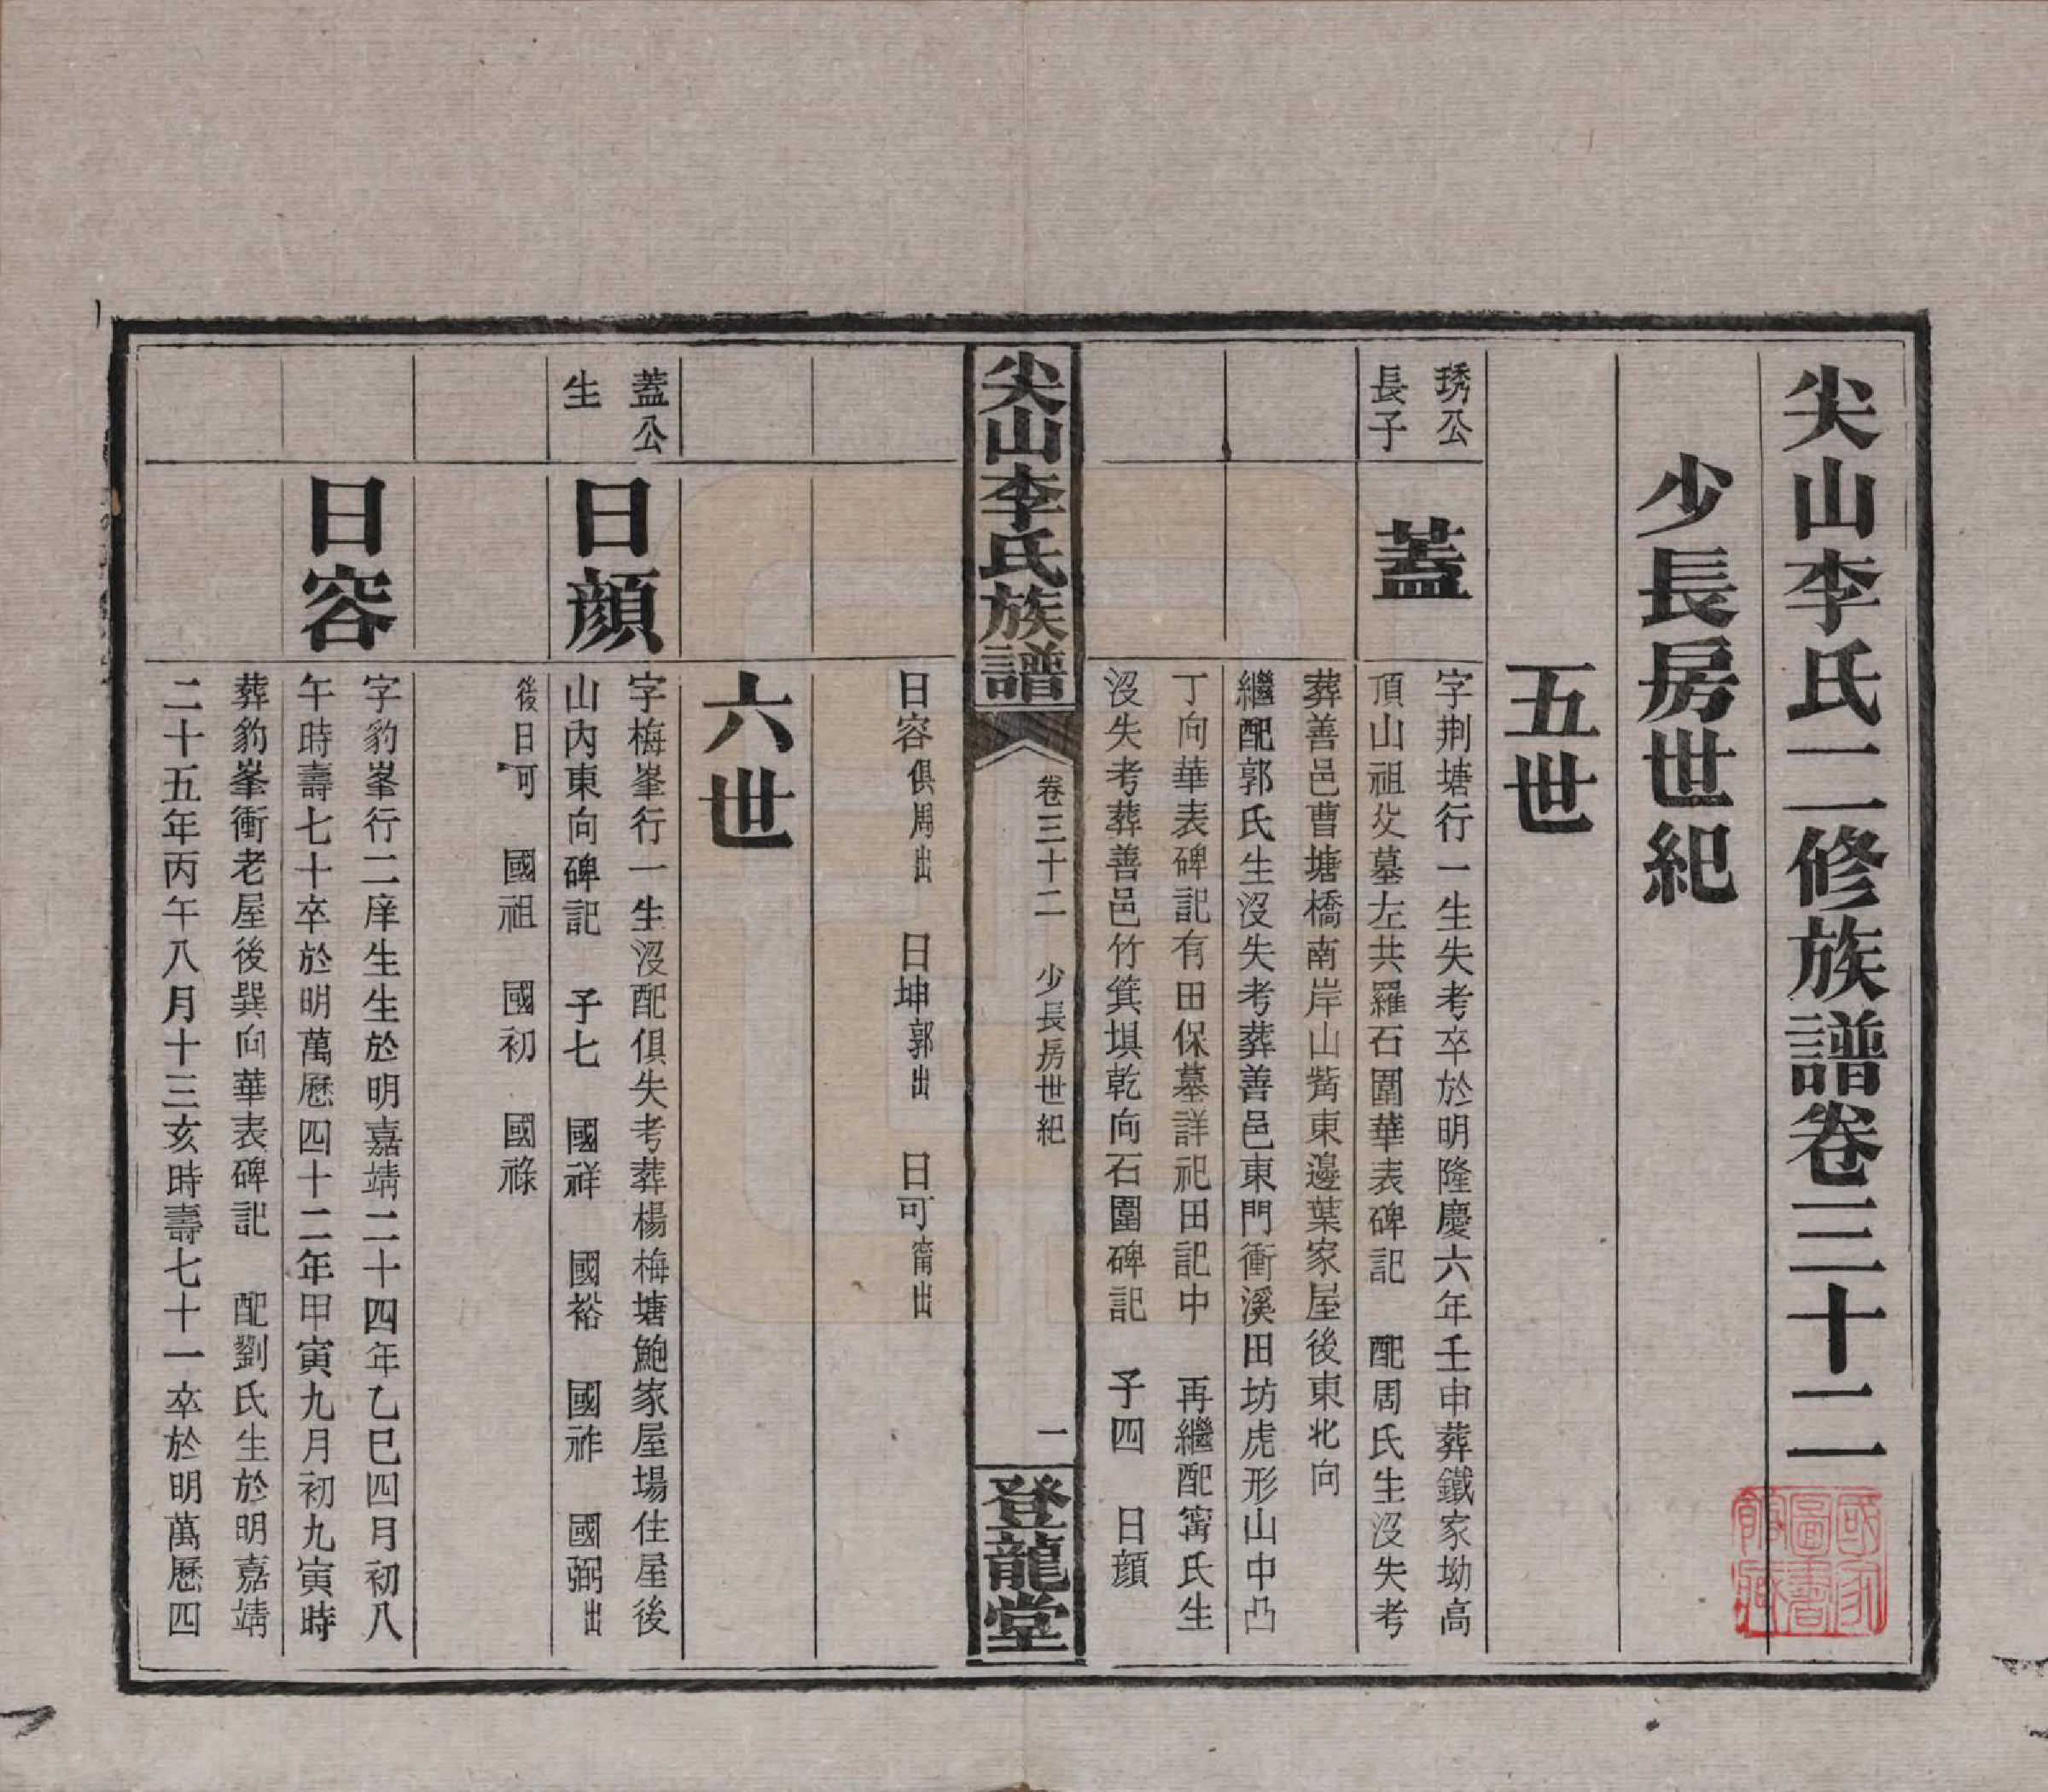 尖山李氏二修族譜卷三十二
少長房世紀
五世
琇公
長子
蓋
字荆塘行一生失考卒於明隆慶六年壬申葬鐵家坳高
頂山祖父墓左共羅石圍華表碑記　配周氏生沒失考
葬善邑曹塘橋南岸山觜東邊葉家屋後東北向
繼配郭氏生沒失考葬善邑東門衝溪田坊虎形山中凸
丁向華表碑記有田保墓詳祀田記中　再繼配甯氏生
沒失考葬善邑竹箕埧乾向石圍碑記　子四　日顔
尖山李氏族譜
卷三十二　少長房世紀
一
登龍堂
日容俱周出　日坤郭出　日可甯出
六世
蓋公
生
日顔
字梅峯行一生沒配俱失考葬楊梅塘鮑家屋場住屋後
山內東向碑記　子七　國祥　國裕　國祚　國弼出
後日可　國祖　國初　國祿
日容
字豹峯行二庠生生於明嘉靖二十四年乙巳四月初八
午時壽七十卒於明萬歷四十二年甲寅九月初九寅時
葬豹峯衝老屋後巽向華表碑記　配劉氏生於明嘉靖
二十五年丙午八月十三亥時壽七十一卒於明萬歷四
國家
圖書
館藏